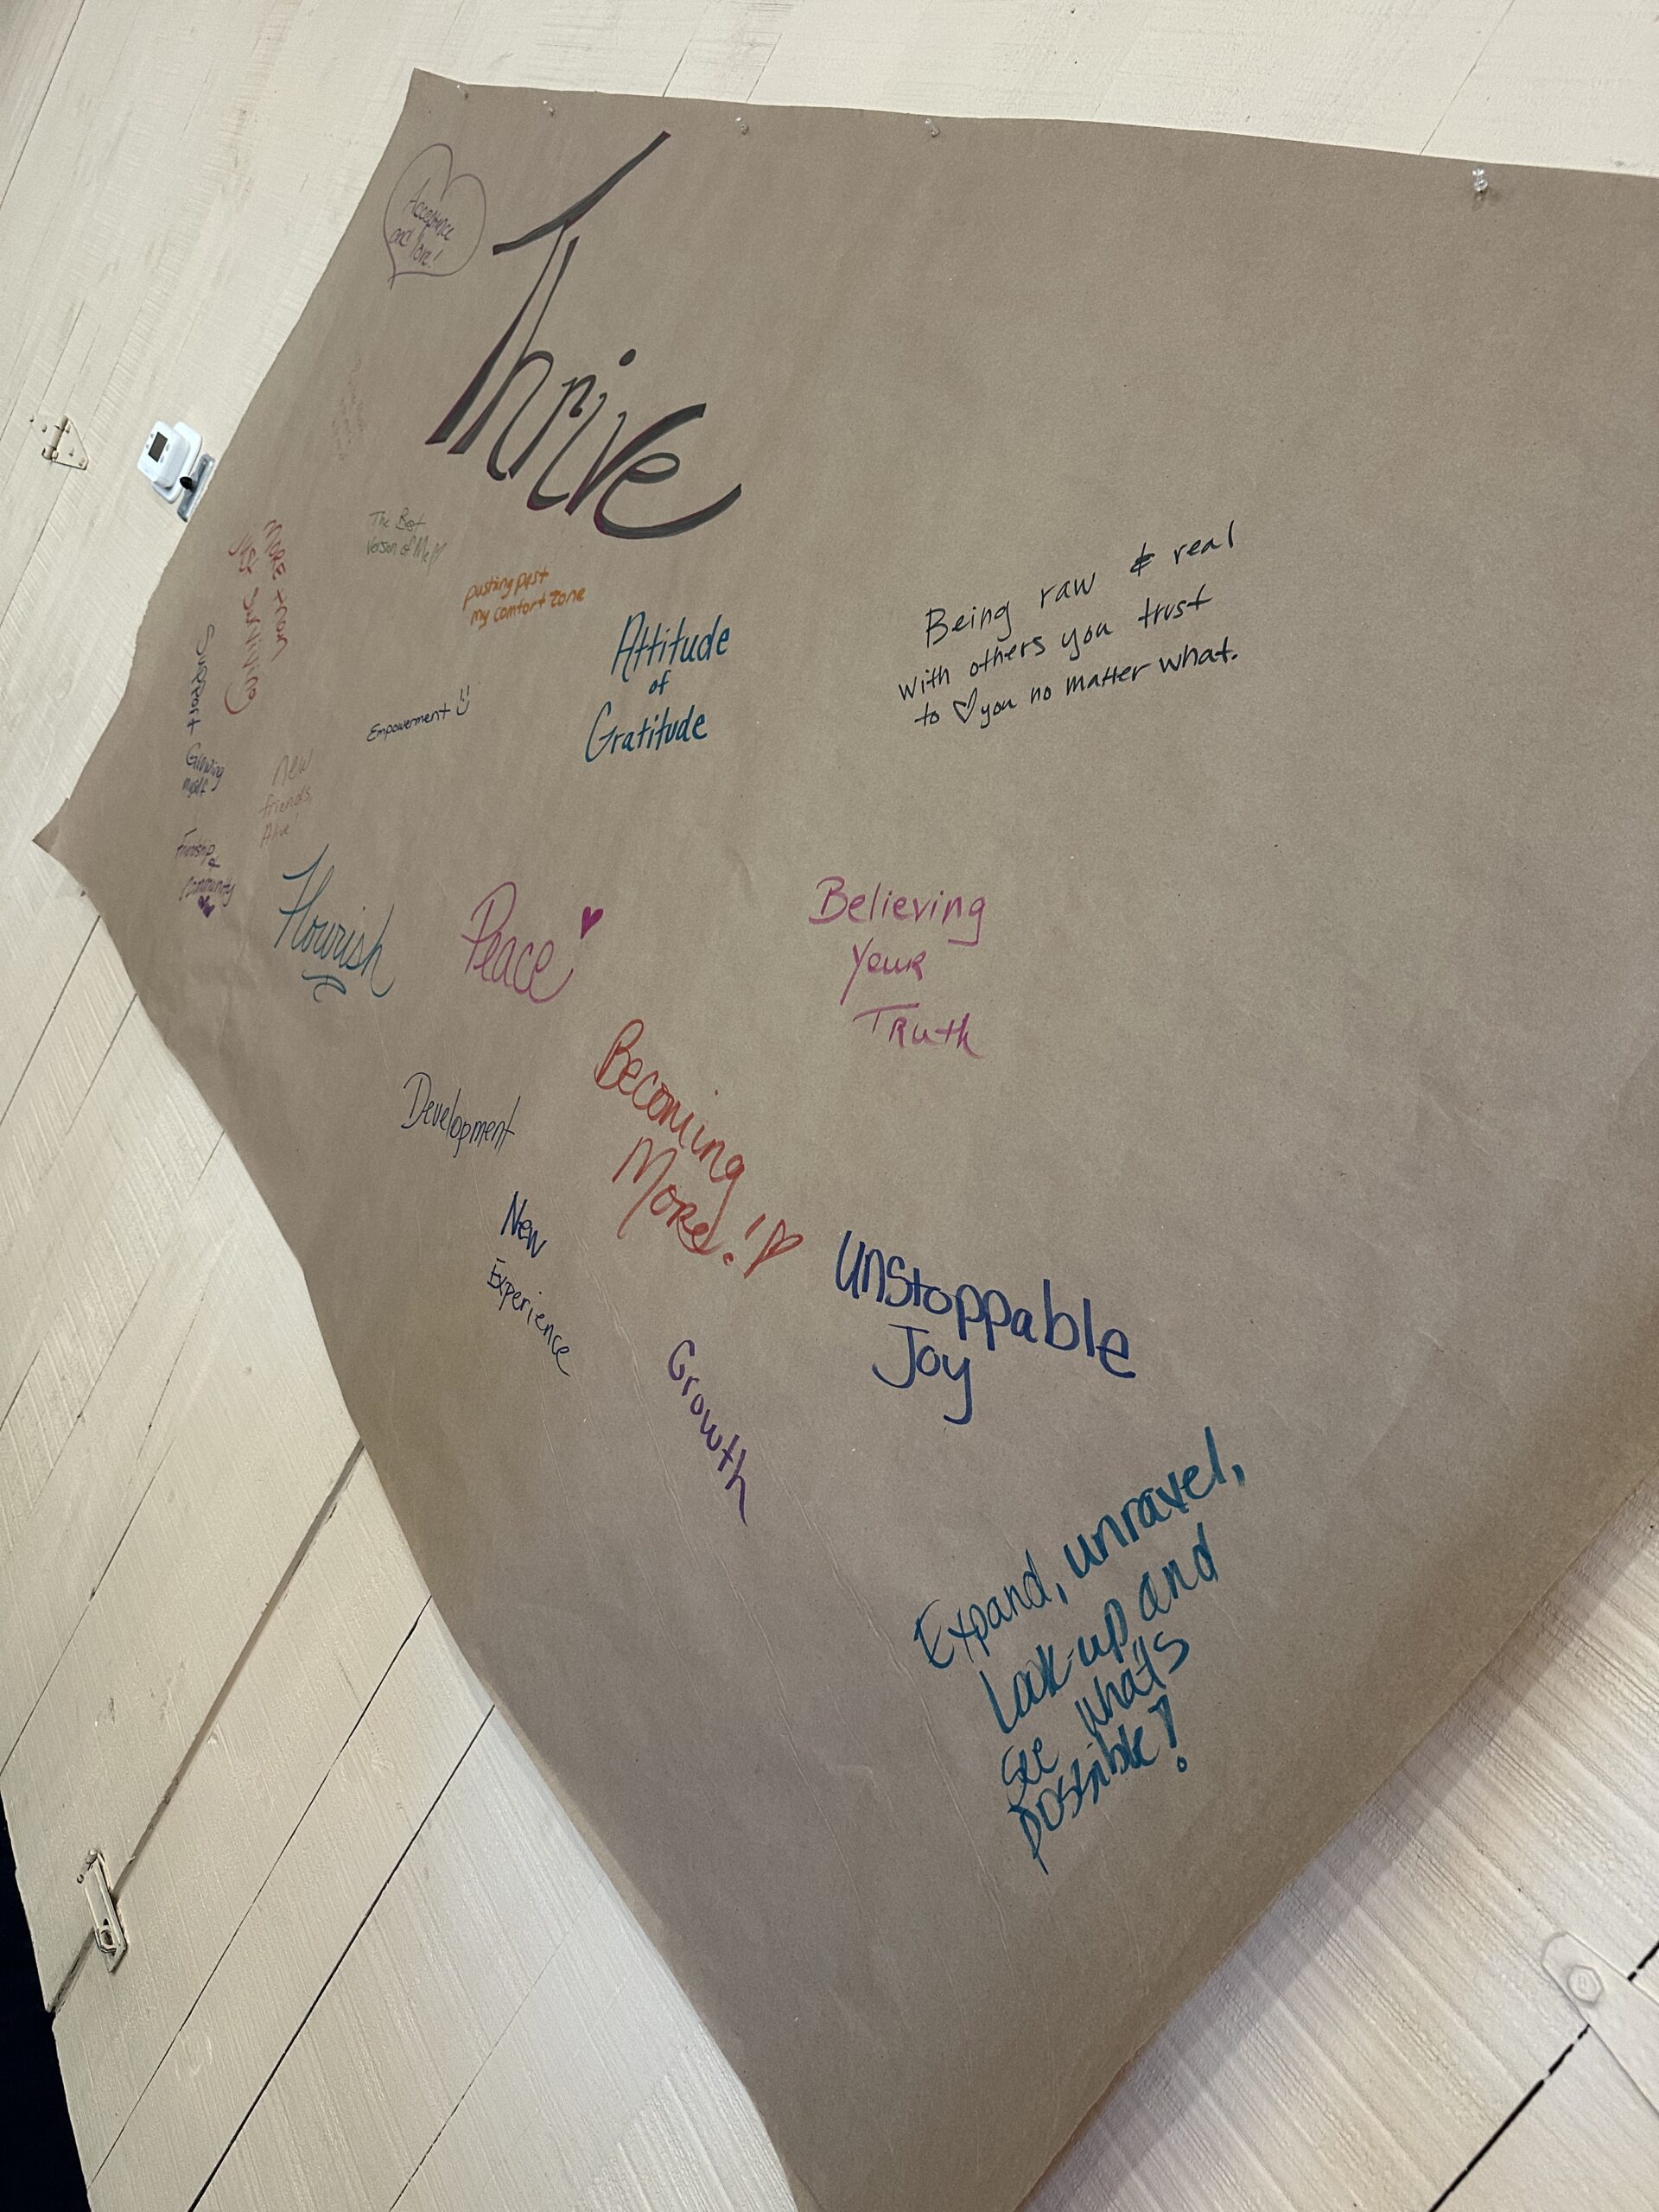 Acceptance
and love!
Thrive
The Best
Version of Me!!
pushing past
my comfort zone
MORE than
JUST SURVIVING
Support
Empowerment
Attitude
of
Gratitude
Being raw & real
with others you trust
to ♡ you no matter what.
Growing
myself
New
friends,
Alive!
Friendship
&
Community
Flourish
Peace ♥
Believing
Your
Truth
Development
Becoming
More! ♡
New
Experience
Growth
Unstoppable
Joy
Expand, unravel,
Look-up and
see what's
possible!